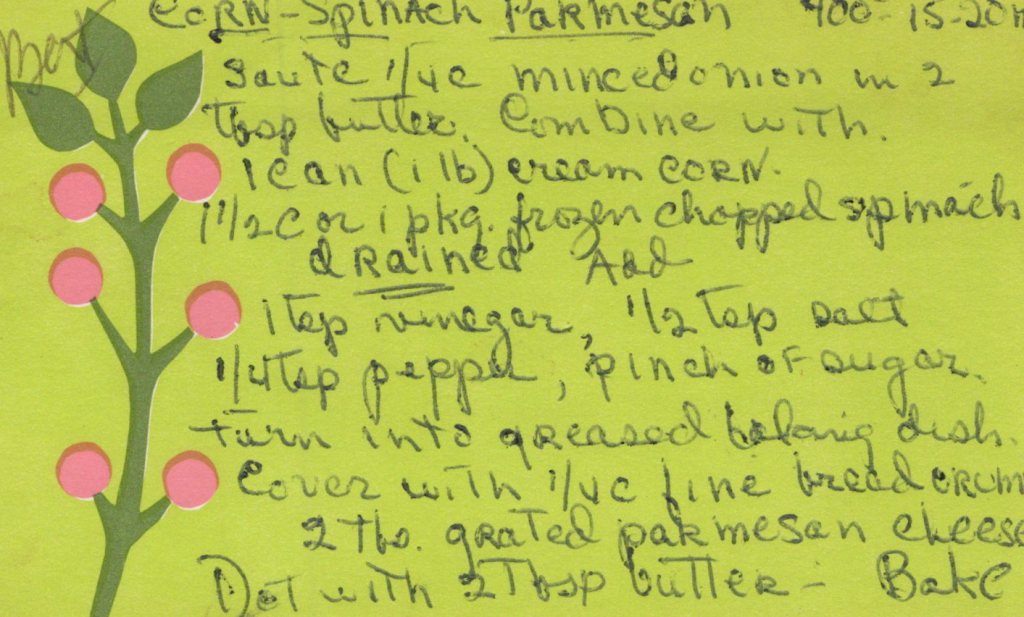 Best
Corn-Spinach Parmesan 400° 15-20m
Saute 1/4c minced onion in 2
Tbsp butter. Combine with.
1 can (1 lb) cream corn.
1 1/2 c or 1 pkg. frozen chopped spinach
drained Add
1 tsp vinegar, 1/2 tsp salt
1/4 tsp pepper, pinch of sugar.
turn into greased baking dish.
Cover with 1/4c fine bread crum
2 Tbs. grated parmesan cheese
Dot with 2 Tbsp butter - Bake